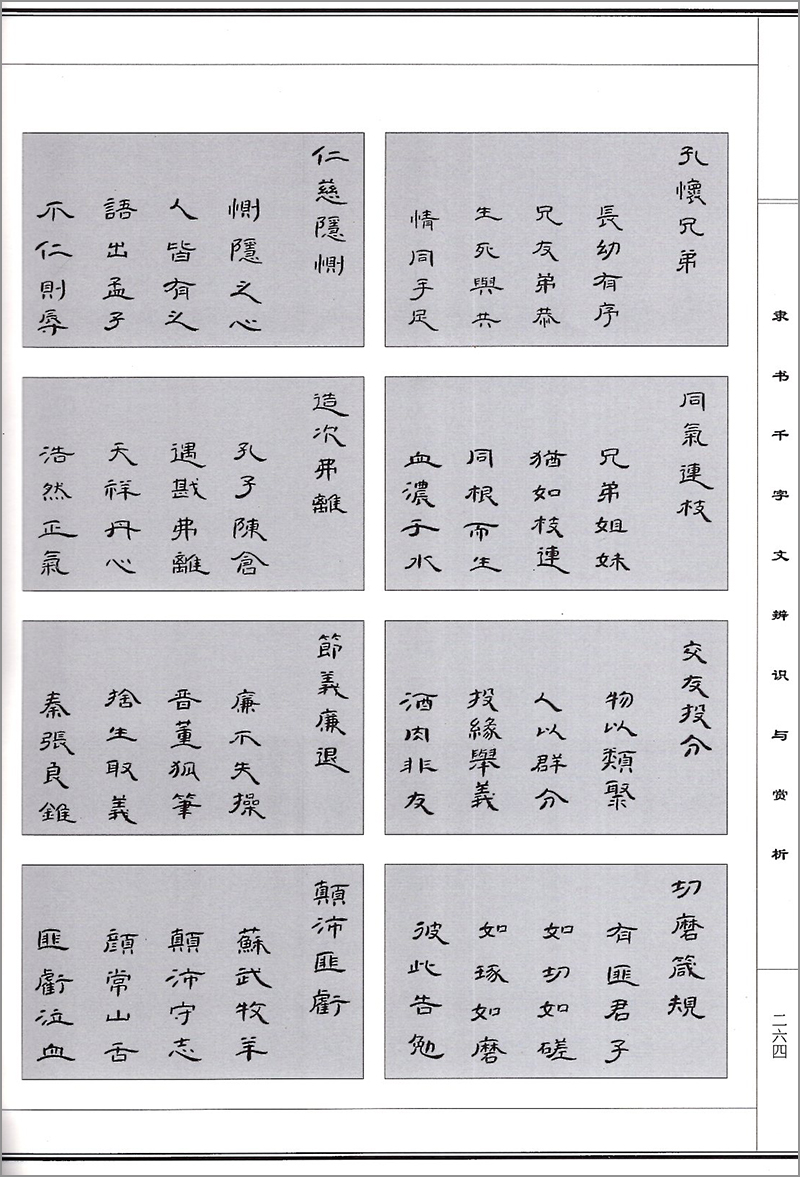 隶书千字文辨识与赏析
二六四
孔懷兄弟
長幼有序
兄友弟恭
生死與共
情同手足
同氣連枝
兄弟姐妹
猶如枝連
同根而生
血濃于水
交友投分
物以類聚
人以群分
投緣舉義
酒肉非友
切磨箴規
有匪君子
如切如磋
如琢如磨
彼此告勉
仁慈隱惻
惻隱之心
人皆有之
語出孟子
不仁則辱
造次弗離
孔子陳倉
遇戡弗離
天祥丹心
浩然正氣
節義廉退
廉不失操
晋董狐筆
捨生取義
秦張良錐
顛沛匪虧
蘇武牧羊
顛沛守志
顔常山舌
匪虧泣血